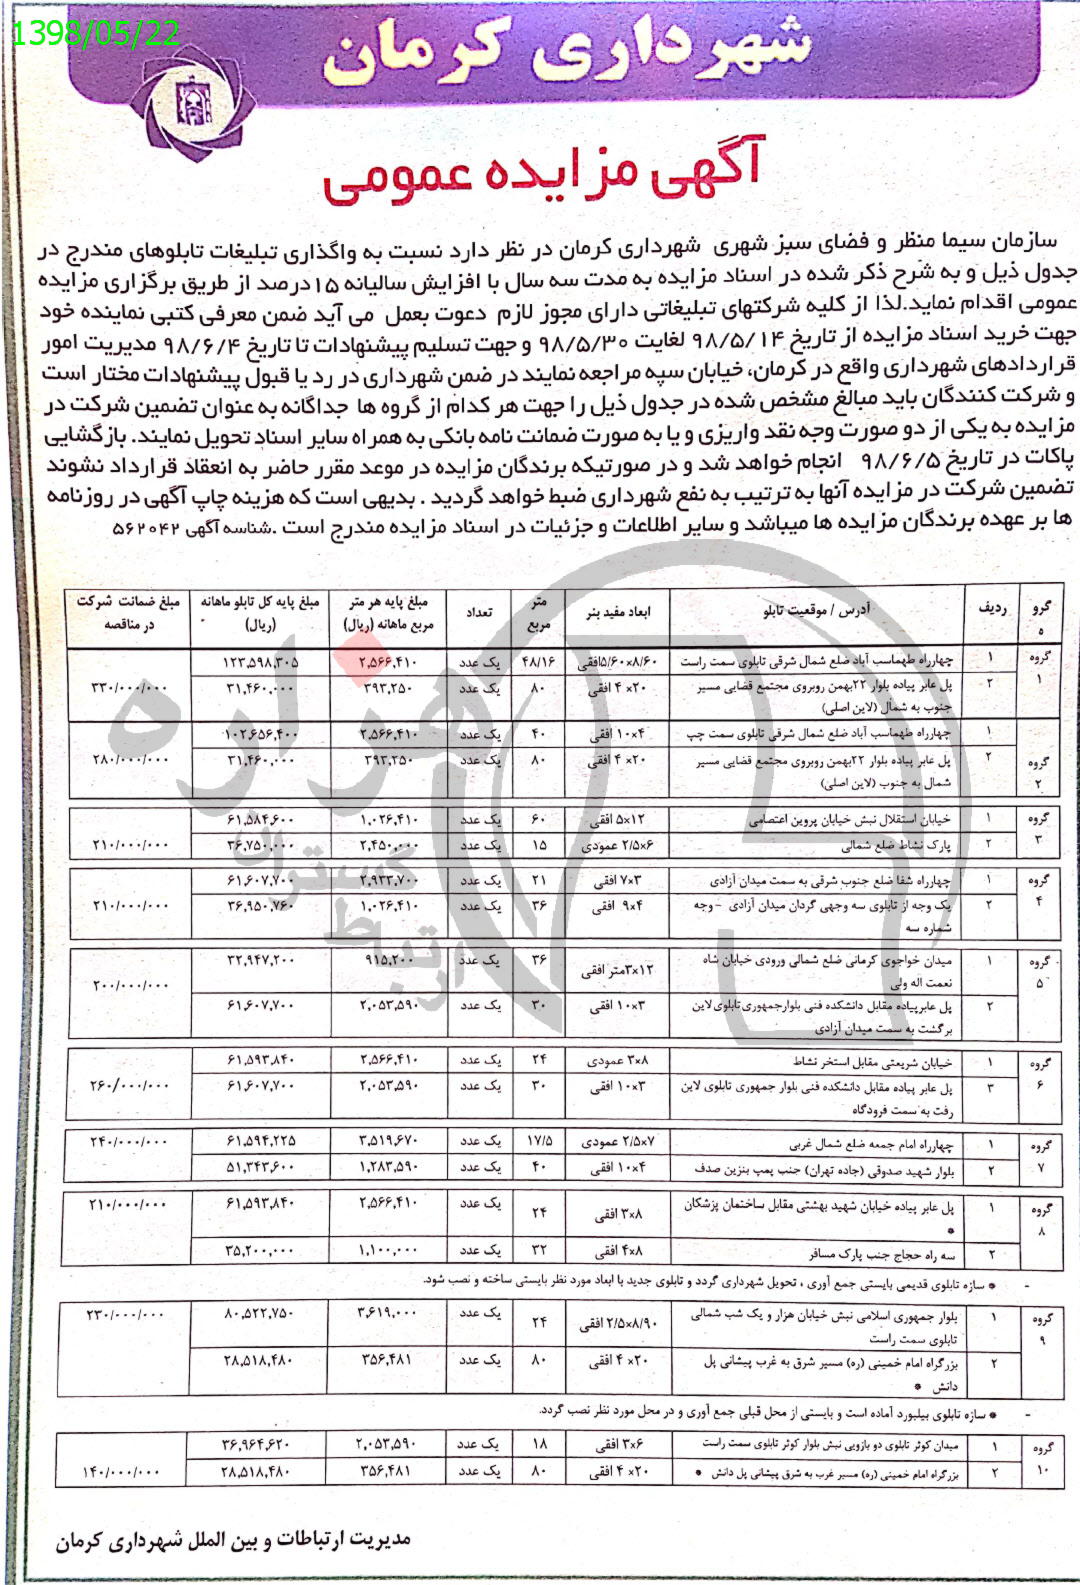 1398/05/22
شهرداری کرمان
آگهی مزایده عمومی
سازمان سیما منظر و فضای سبز شهری شهرداری کرمان در نظر دارد نسبت به واگذاری تبلیغات تابلوهای مندرج در
جدول ذیل و به شرح ذکر شده در اسناد مزایده به مدت سه سال با افزایش سالیانه ۱۵درصد از طریق برگزاری مزایده
عمومی اقدام نماید.لذا از کلیه شرکتهای تبلیغاتی دارای مجوز لازم دعوت بعمل می آید ضمن معرفی کتبی نماینده خود
جهت خرید اسناد مزایده از تاریخ ۹۸/۵/۱۴ لغایت ۹۸/۵/۳۰ و جهت تسلیم پیشنهادات تا تاریخ ۹۸/۶/۴ مدیریت امور
قراردادهای شهرداری واقع در کرمان، خیابان سپه مراجعه نمایند در ضمن شهرداری در رد یا قبول پیشنهادات مختار است
و شرکت کنندگان باید مبالغ مشخص شده در جدول ذیل را جهت هر کدام از گروه ها جداگانه به عنوان تضمین شرکت در
مزایده به یکی از دو صورت وجه نقد واریزی و یا به صورت ضمانت نامه بانکی به همراه سایر اسناد تحویل نمایند. بازگشایی
پاکات در تاریخ ۹۸/۶/۵ انجام خواهد شد و در صورتیکه برندگان مزایده در موعد مقرر حاضر به انعقاد قرارداد نشوند
تضمین شرکت در مزایده آنها به ترتیب به نفع شهرداری ضبط خواهد گردید . بدیهی است که هزینه چاپ آگهی در روزنامه
ها بر عهده برندگان مزایده ها میباشد و سایر اطلاعات و جزئیات در اسناد مزایده مندرج است .شناسه آگهی ۵۶۲۰۴۲
گرو ه ردیف آدرس / موقعیت تابلو ابعاد مفید بنر متر مربع تعداد مبلغ پایه هر متر مربع ماهانه (ریال) مبلغ پایه کل تابلو ماهانه (ریال) مبلغ ضمانت شرکت در مناقصه
گروه ۱ ۱ چهارراه طهماسب آباد ضلع شمال شرقی تابلوی سمت راست ۵/۶۰×۸/۶۰افقی ۴۸/۱۶ یک عدد ۲,۵۶۶,۴۱۰ ۱۲۳,۵۹۸,۳۰۵
۲ پل عابر پیاده بلوار ۲۲بهمن روبروی مجتمع قضایی مسیر ۲۰× ۴ افقی ۸۰ یک عدد ۳۹۳,۲۵۰ ۳۱,۴۶۰,۰۰۰ ۳۳۰/۰۰۰/۰۰۰
جنوب به شمال (لاین اصلی)
گروه ۲ ۱ چهارراه طهماسب آباد ضلع شمال شرقی تابلوی سمت چپ ۴×۱۰ افقی ۴۰ یک عدد ۲,۵۶۶,۴۱۰ ۱۰۲,۶۵۶,۴۰۰
۲ پل عابر پیاده بلوار ۲۲بهمن روبروی مجتمع قضایی مسیر ۲۰× ۴ افقی ۸۰ یک عدد ۳۹۳,۲۵۰ ۳۱,۴۶۰,۰۰۰ ۲۸۰/۰۰۰/۰۰۰
شمال به جنوب (لاین اصلی)
گروه ۳ ۱ خیابان استقلال نبش خیابان پروین اعتصامی ۱۲×۵ افقی ۶۰ یک عدد ۱,۰۲۶,۴۱۰ ۶۱,۵۸۴,۶۰۰
۲ پارک نشاط ضلع شمالی ۶×۲/۵ عمودی ۱۵ یک عدد ۲,۴۵۰,۰۰۰ ۳۶,۷۵۰,۰۰۰ ۲۱۰/۰۰۰/۰۰۰
گروه ۴ ۱ چهارراه شفا ضلع جنوب شرقی به سمت میدان آزادی ۳×۷ افقی ۲۱ یک عدد ۲,۹۳۳,۷۰۰ ۶۱,۶۰۷,۷۰۰
۲ یک وجه از تابلوی سه وجهی گردان میدان آزادی - وجه ۴×۹ افقی ۳۶ یک عدد ۱,۰۲۶,۴۱۰ ۳۶,۹۵۰,۷۶۰ ۲۱۰/۰۰۰/۰۰۰
شماره سه
گروه ۵ ۱ میدان خواجوی کرمانی ضلع شمالی ورودی خیابان شاه ۱۲×۳متر افقی ۳۶ یک عدد ۹۱۵,۲۰۰ ۳۲,۹۴۷,۲۰۰ ۲۰۰/۰۰۰/۰۰۰
نعمت اله ولی
۲ پل عابرپیاده مقابل دانشکده فنی بلوارجمهوری تابلوی لاین ۳×۱۰ افقی ۳۰ یک عدد ۲,۰۵۳,۵۹۰ ۶۱,۶۰۷,۷۰۰
برگشت به سمت میدان آزادی
گروه ۶ ۱ خیابان شریعتی مقابل استخر نشاط ۸×۳ عمودی ۲۴ یک عدد ۲,۵۶۶,۴۱۰ ۶۱,۵۹۳,۸۴۰
۳ پل عابر پیاده مقابل دانشکده فنی بلوار جمهوری تابلوی لاین ۳×۱۰ افقی ۳۰ یک عدد ۲,۰۵۳,۵۹۰ ۶۱,۶۰۷,۷۰۰ ۲۶۰/۰۰۰/۰۰۰
رفت به سمت فرودگاه
گروه ۷ ۱ چهارراه امام جمعه ضلع شمال غربی ۷×۲/۵ عمودی ۱۷/۵ یک عدد ۳,۵۱۹,۶۷۰ ۶۱,۵۹۴,۲۲۵ ۲۴۰/۰۰۰/۰۰۰
۲ بلوار شهید صدوقی (جاده تهران) جنب پمپ بنزین صدف ۴×۱۰ افقی ۴۰ یک عدد ۱,۲۸۳,۵۹۰ ۵۱,۳۴۳,۶۰۰
گروه ۸ ۱ پل عابر پیاده خیابان شهید بهشتی مقابل ساختمان پزشکان * ۸×۳ افقی ۲۴ یک عدد ۲,۵۶۶,۴۱۰ ۶۱,۵۹۳,۸۴۰ ۲۱۰/۰۰۰/۰۰۰
۲ سه راه حجاج جنب پارک مسافر ۸×۴ افقی ۳۲ یک عدد ۱,۱۰۰,۰۰۰ ۳۵,۲۰۰,۰۰۰
- * سازه تابلوی قدیمی بایستی جمع آوری ، تحویل شهرداری گردد و تابلوی جدید با ابعاد مورد نظر بایستی ساخته و نصب شود.
گروه ۹ ۱ بلوار جمهوری اسلامی نبش خیابان هزار و یک شب شمالی ۲/۵×۸/۹۰ افقی ۲۴ یک عدد ۳,۶۱۹,۰۰۰ ۸۰,۵۲۲,۷۵۰ ۲۳۰/۰۰۰/۰۰۰
تابلوی سمت راست
۲ بزرگراه امام خمینی (ره) مسیر شرق به غرب پیشانی پل ۲۰× ۴ افقی ۸۰ یک عدد ۳۵۶,۴۸۱ ۲۸,۵۱۸,۴۸۰
دانش *
- * سازه تابلوی بیلبورد آماده است و بایستی از محل قبلی جمع آوری و در محل مورد نظر نصب گردد.
گروه ۱۰ ۱ میدان کوثر تابلوی دو بازویی نبش بلوار کوثر تابلوی سمت راست ۶×۳ افقی ۱۸ یک عدد ۲,۰۵۳,۵۹۰ ۳۶,۹۶۴,۶۲۰
۲ بزرگراه امام خمینی (ره) مسیر غرب به شرق پیشانی پل دانش * ۲۰× ۴ افقی ۸۰ یک عدد ۳۵۶,۴۸۱ ۲۸,۵۱۸,۴۸۰ ۱۴۰/۰۰۰/۰۰۰
مدیریت ارتباطات و بین الملل شهرداری کرمان
هزاره
گستران
ارتباط